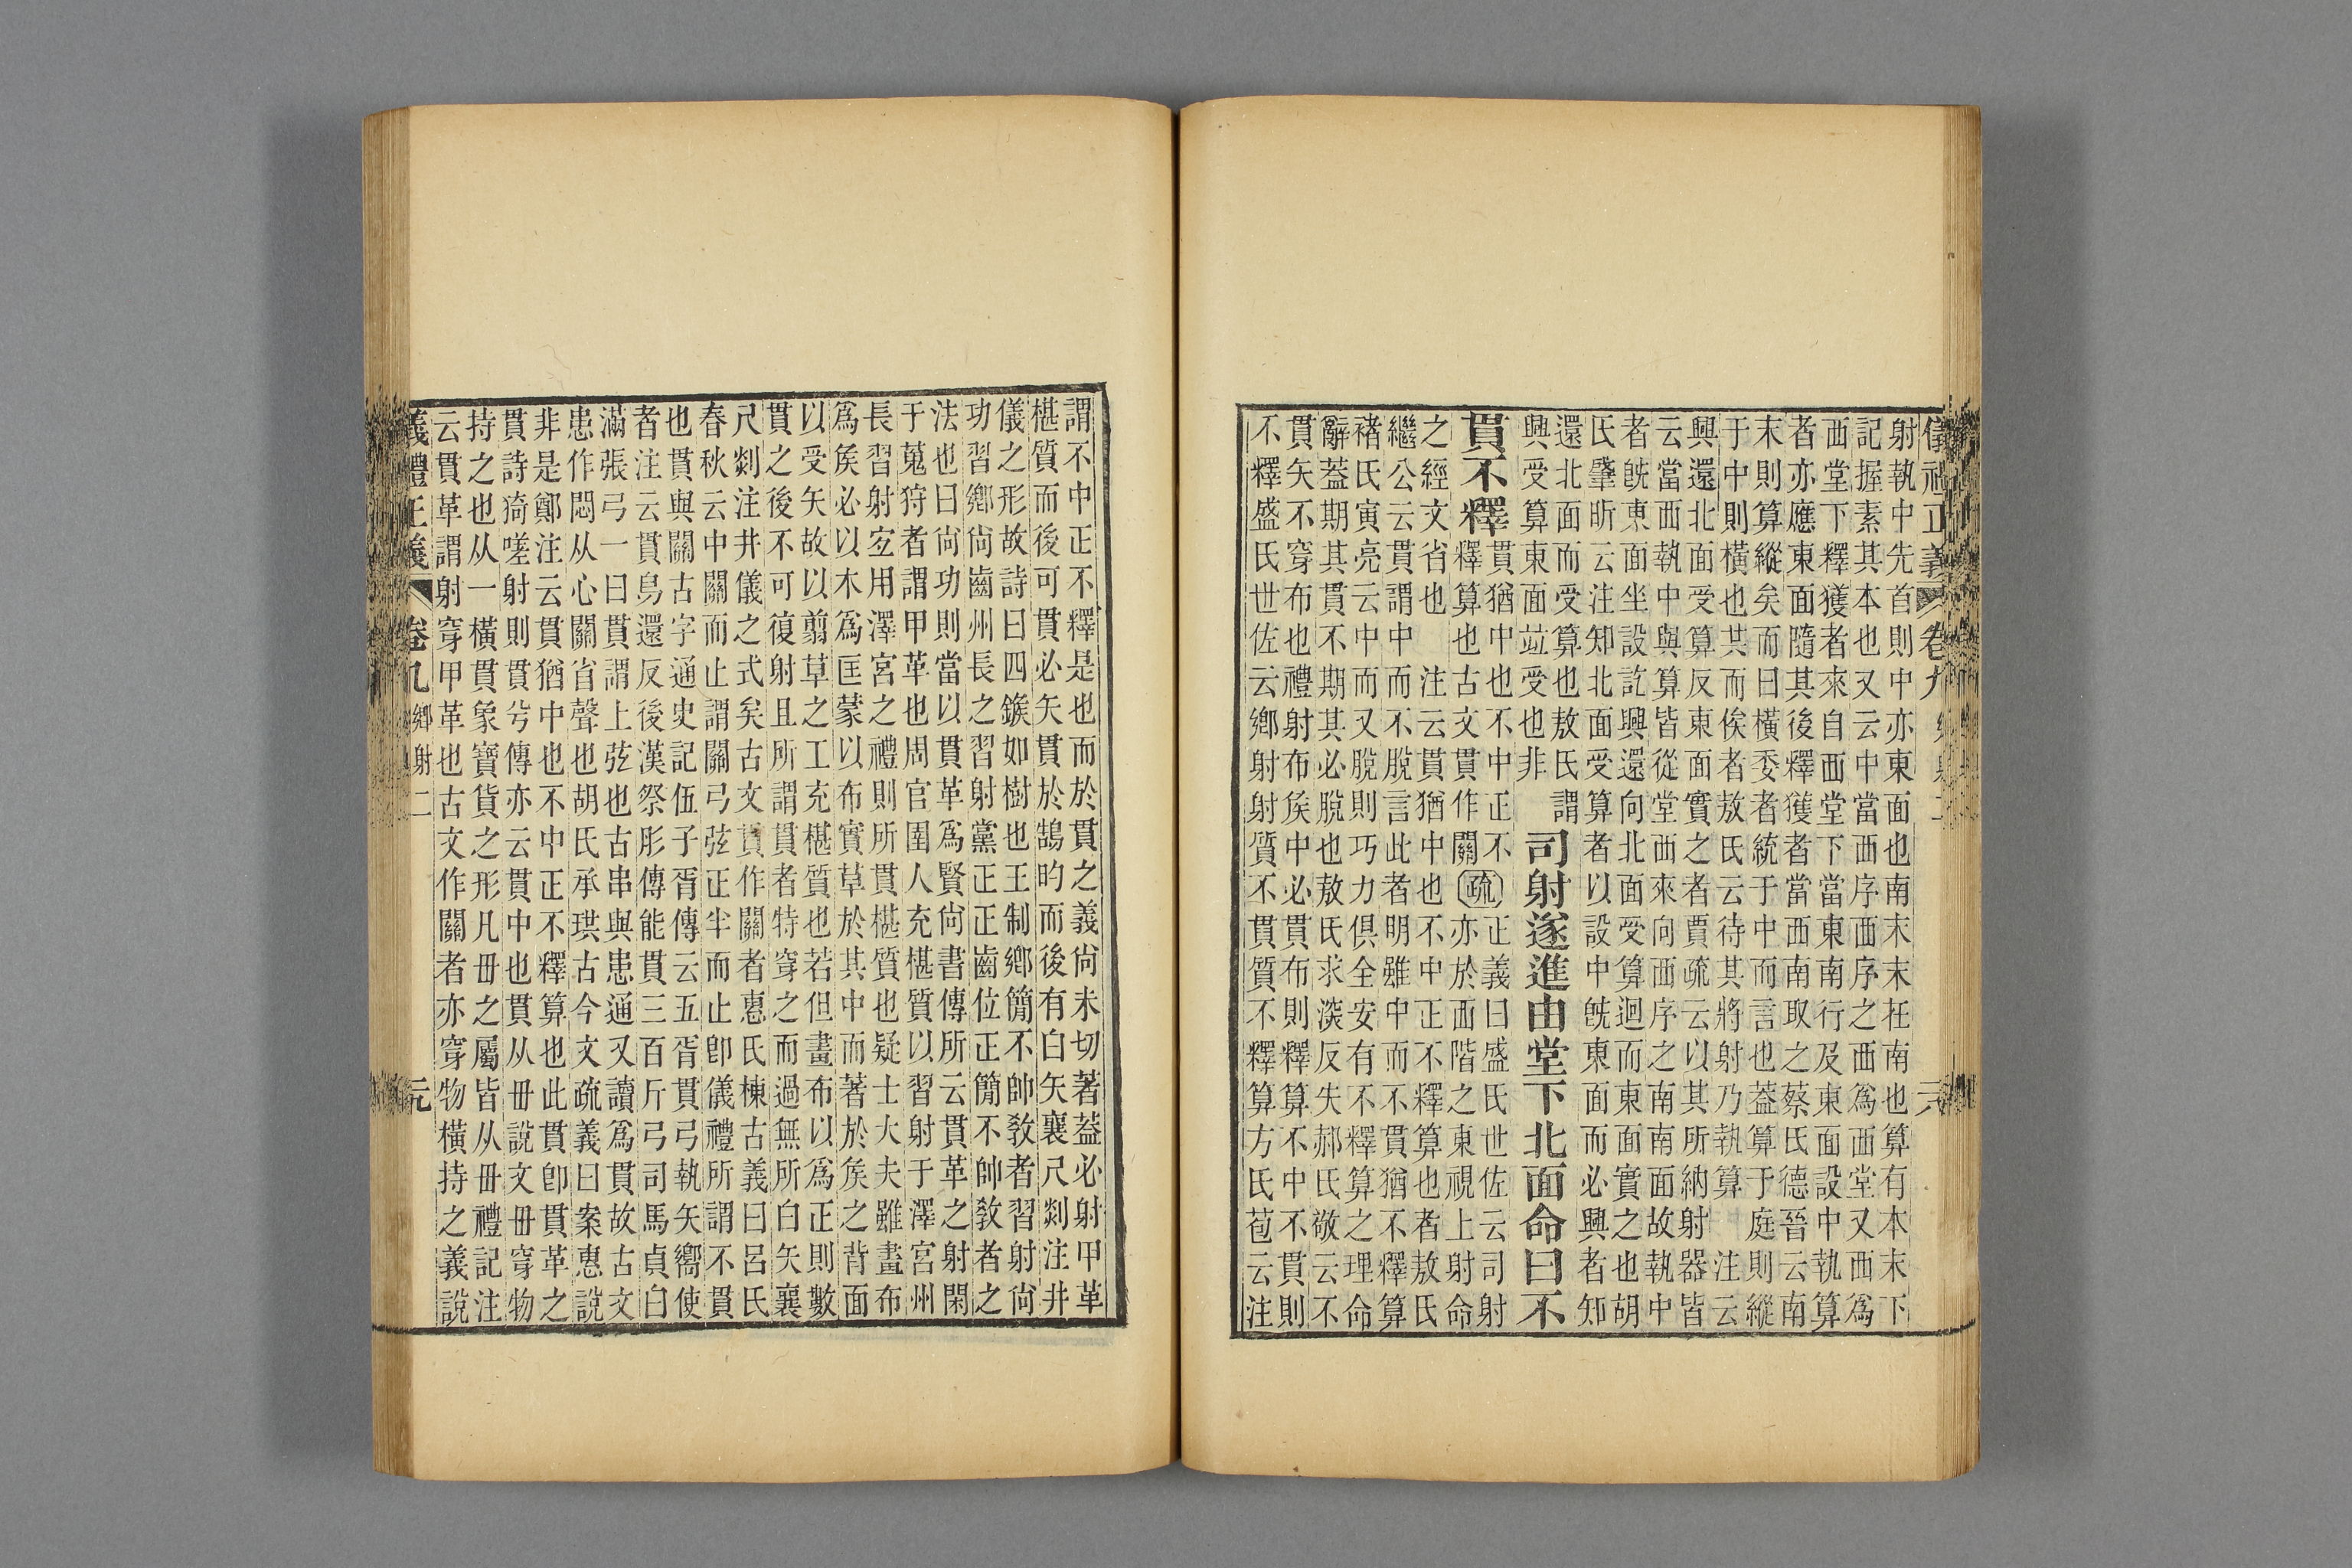 儀禮正義 卷九 鄉射二
射執中先首則中亦東面也南末末在南也算有本末下
記握素其本也又云中當西序西序之西爲西堂又西爲
西堂下釋獲者來自西堂下當東南行及東面設中執算
者亦應東面隨其後釋獲者當西南取之蔡氏德晉云南
末則算縱矣而曰橫委者統于中而言也葢算于庭則縱
于中則橫也其而俟者敖氏云待其將射乃執算 注云
興還北面受算反東面實之者賈疏云以其所納射器皆
云當西執中與算皆從堂西來向西序之南南面故執中
者旣東面坐設訖興還向北面受算迴而東面實之也胡
氏肇昕云注知北面受算者以設中旣東面而必興者知
還北面而受算也敖氏謂
興受算東面竝受也非
司射遂進由堂下北面命曰不
貫不釋
貫猶中也不中正不
釋算也古文貫作關
疏
正義曰盛氏世佐云司射
亦於西階之東視上射命
之經文省也 注云貫猶中也不中正不釋算也者敖氏
繼公云貫謂中而不脫言此者明雖中而不貫猶不釋算
褚氏寅亮云中而又脫則巧力俱全安有不釋算之理命
辭葢期其貫不期其必脫也敖氏求深反失郝氏敬云不
貫矢不穿布也禮射布侯中必貫布則釋算不中不貫則
不釋盛氏世佐云鄉射射質不貫質不釋算方氏苞云注
謂不中正不釋是也而於貫之義尚未切著葢必射甲革
椹質而後可貫必矢貫於鵠旳而後有白矢襄尺剡注井
儀之形故詩曰四鍭如樹也王制鄉簡不帥敎者習射尚
功習鄉尚齒州長之習射黨正正齒位正簡不帥敎者之
法也曰尚功則當以貫革爲賢尚書傳所云貫革之射閑
于蒐狩者謂甲革也周官圉人充椹質以習射于澤宮州
長習射宐用澤宮之禮則所貫椹質也疑士大夫雖畫布
爲侯必以木爲匡蒙以布實草於其中而著於侯之背面
以受矢故以翦草之工充椹質也若但畫布以爲正則數
貫之後不可復射且所謂貫者特穿之而過無所白矢襄
尺剡注井儀之式矣古文貫作關者惠氏棟古義曰呂氏
春秋云中關而止謂關弓弦正半而止卽儀禮所謂不貫
也貫與關古字通史記伍子胥傳云五胥貫弓執矢嚮使
者注云貫烏還反後漢祭肜傳能貫三百斤弓司馬貞曰
滿張弓一曰貫謂上弦也古串與患通又讀爲貫故古文
患作悶从心關省聲也胡氏承珙古今文疏義曰案惠說
非是鄭注云貫猶中也不中正不釋算也此貫卽貫革之
貫詩猗嗟射則貫兮傳亦云貫中也貫从毌說文毌穿物
持之也从一橫貫象寶貨之形凡毌之屬皆从毌禮記注
云貫革謂射穿甲革也古文作關者亦穿物橫持之義說
義禮正義 卷九 鄉射二